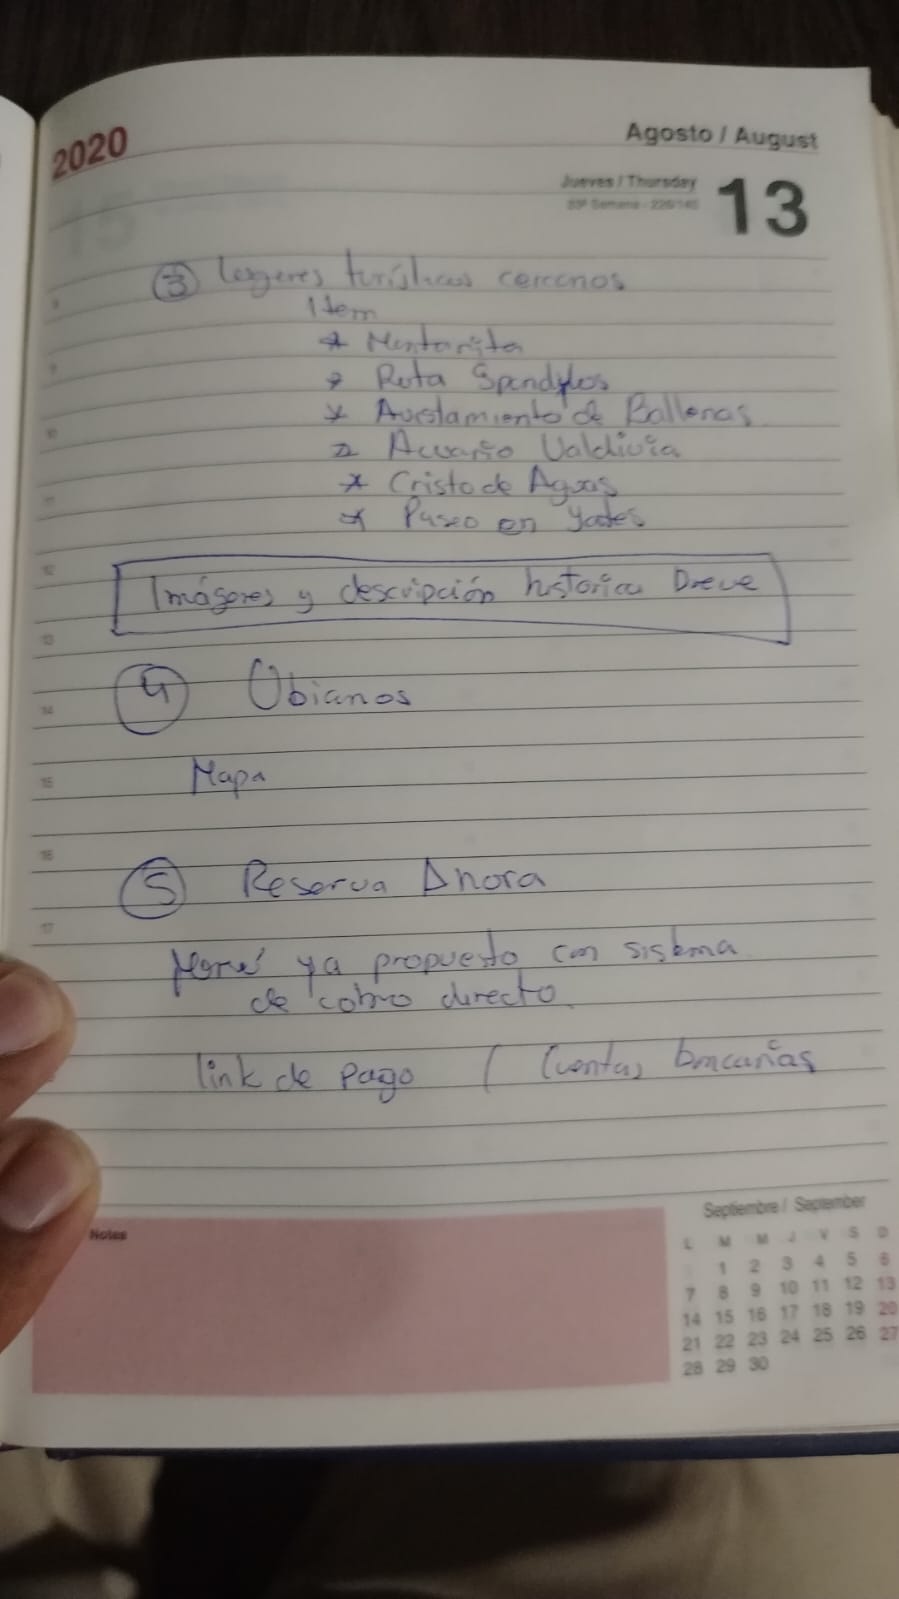 2020
Agosto / August
Jueves / Thursday
13
③ lugares turísticos cercanos
Item
* Montañita
* Ruta Spondylus
* Avistamiento de Ballenas
* Acuario Valdivia
* Cristo de Aguas
* Paseo en yates
Imágenes y descripción historica Breve
④ Ubianos
Mapa
⑤ Reserva Ahora
ya propuesto con sistema
de cobro directo.
link de pago ( Cuentas bancarias
Notes
Septiembre / September
L M M J V S D
1 2 3 4 5 6
7 8 9 10 11 12 13
14 15 16 17 18 19 20
21 22 23 24 25 26 27
28 29 30